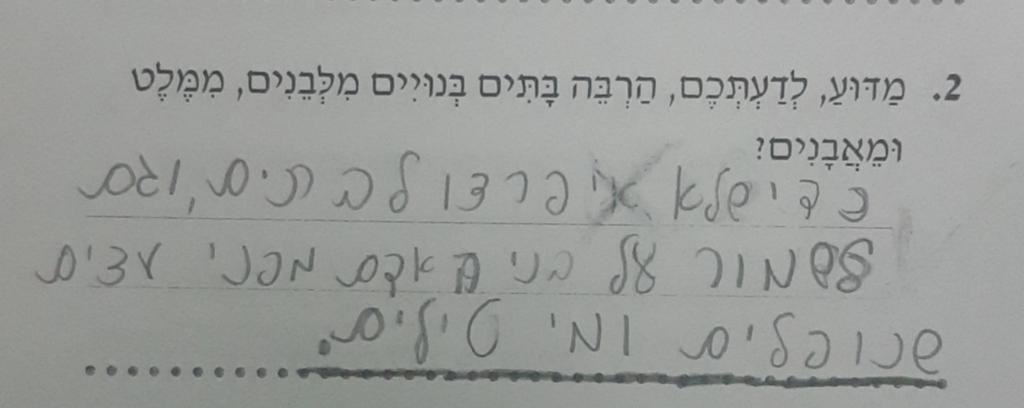 2. מַדּוּעַ, לְדַעְתְּכֶם, הַרְבֵּה בָּתִּים בְּנוּיִים מִלְּבֵנִים, מִמֶּלֶט
וּמֵאֲבָנִים?
כדי שלא יפרדו לבתים, וגם
לשמור על בני אדם מפני עצים
שנופלים ומי טילים.